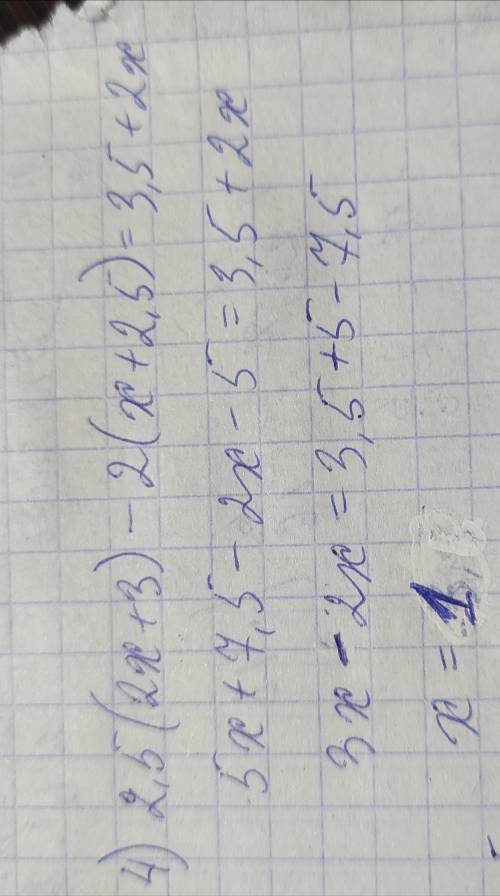 4) 2,5(2x+3) - 2(x+2,5) = 3,5 + 2x
5x + 7,5 - 2x - 5 = 3,5 + 2x
3x - 2x = 3,5 + 5 - 7,5
x = 1